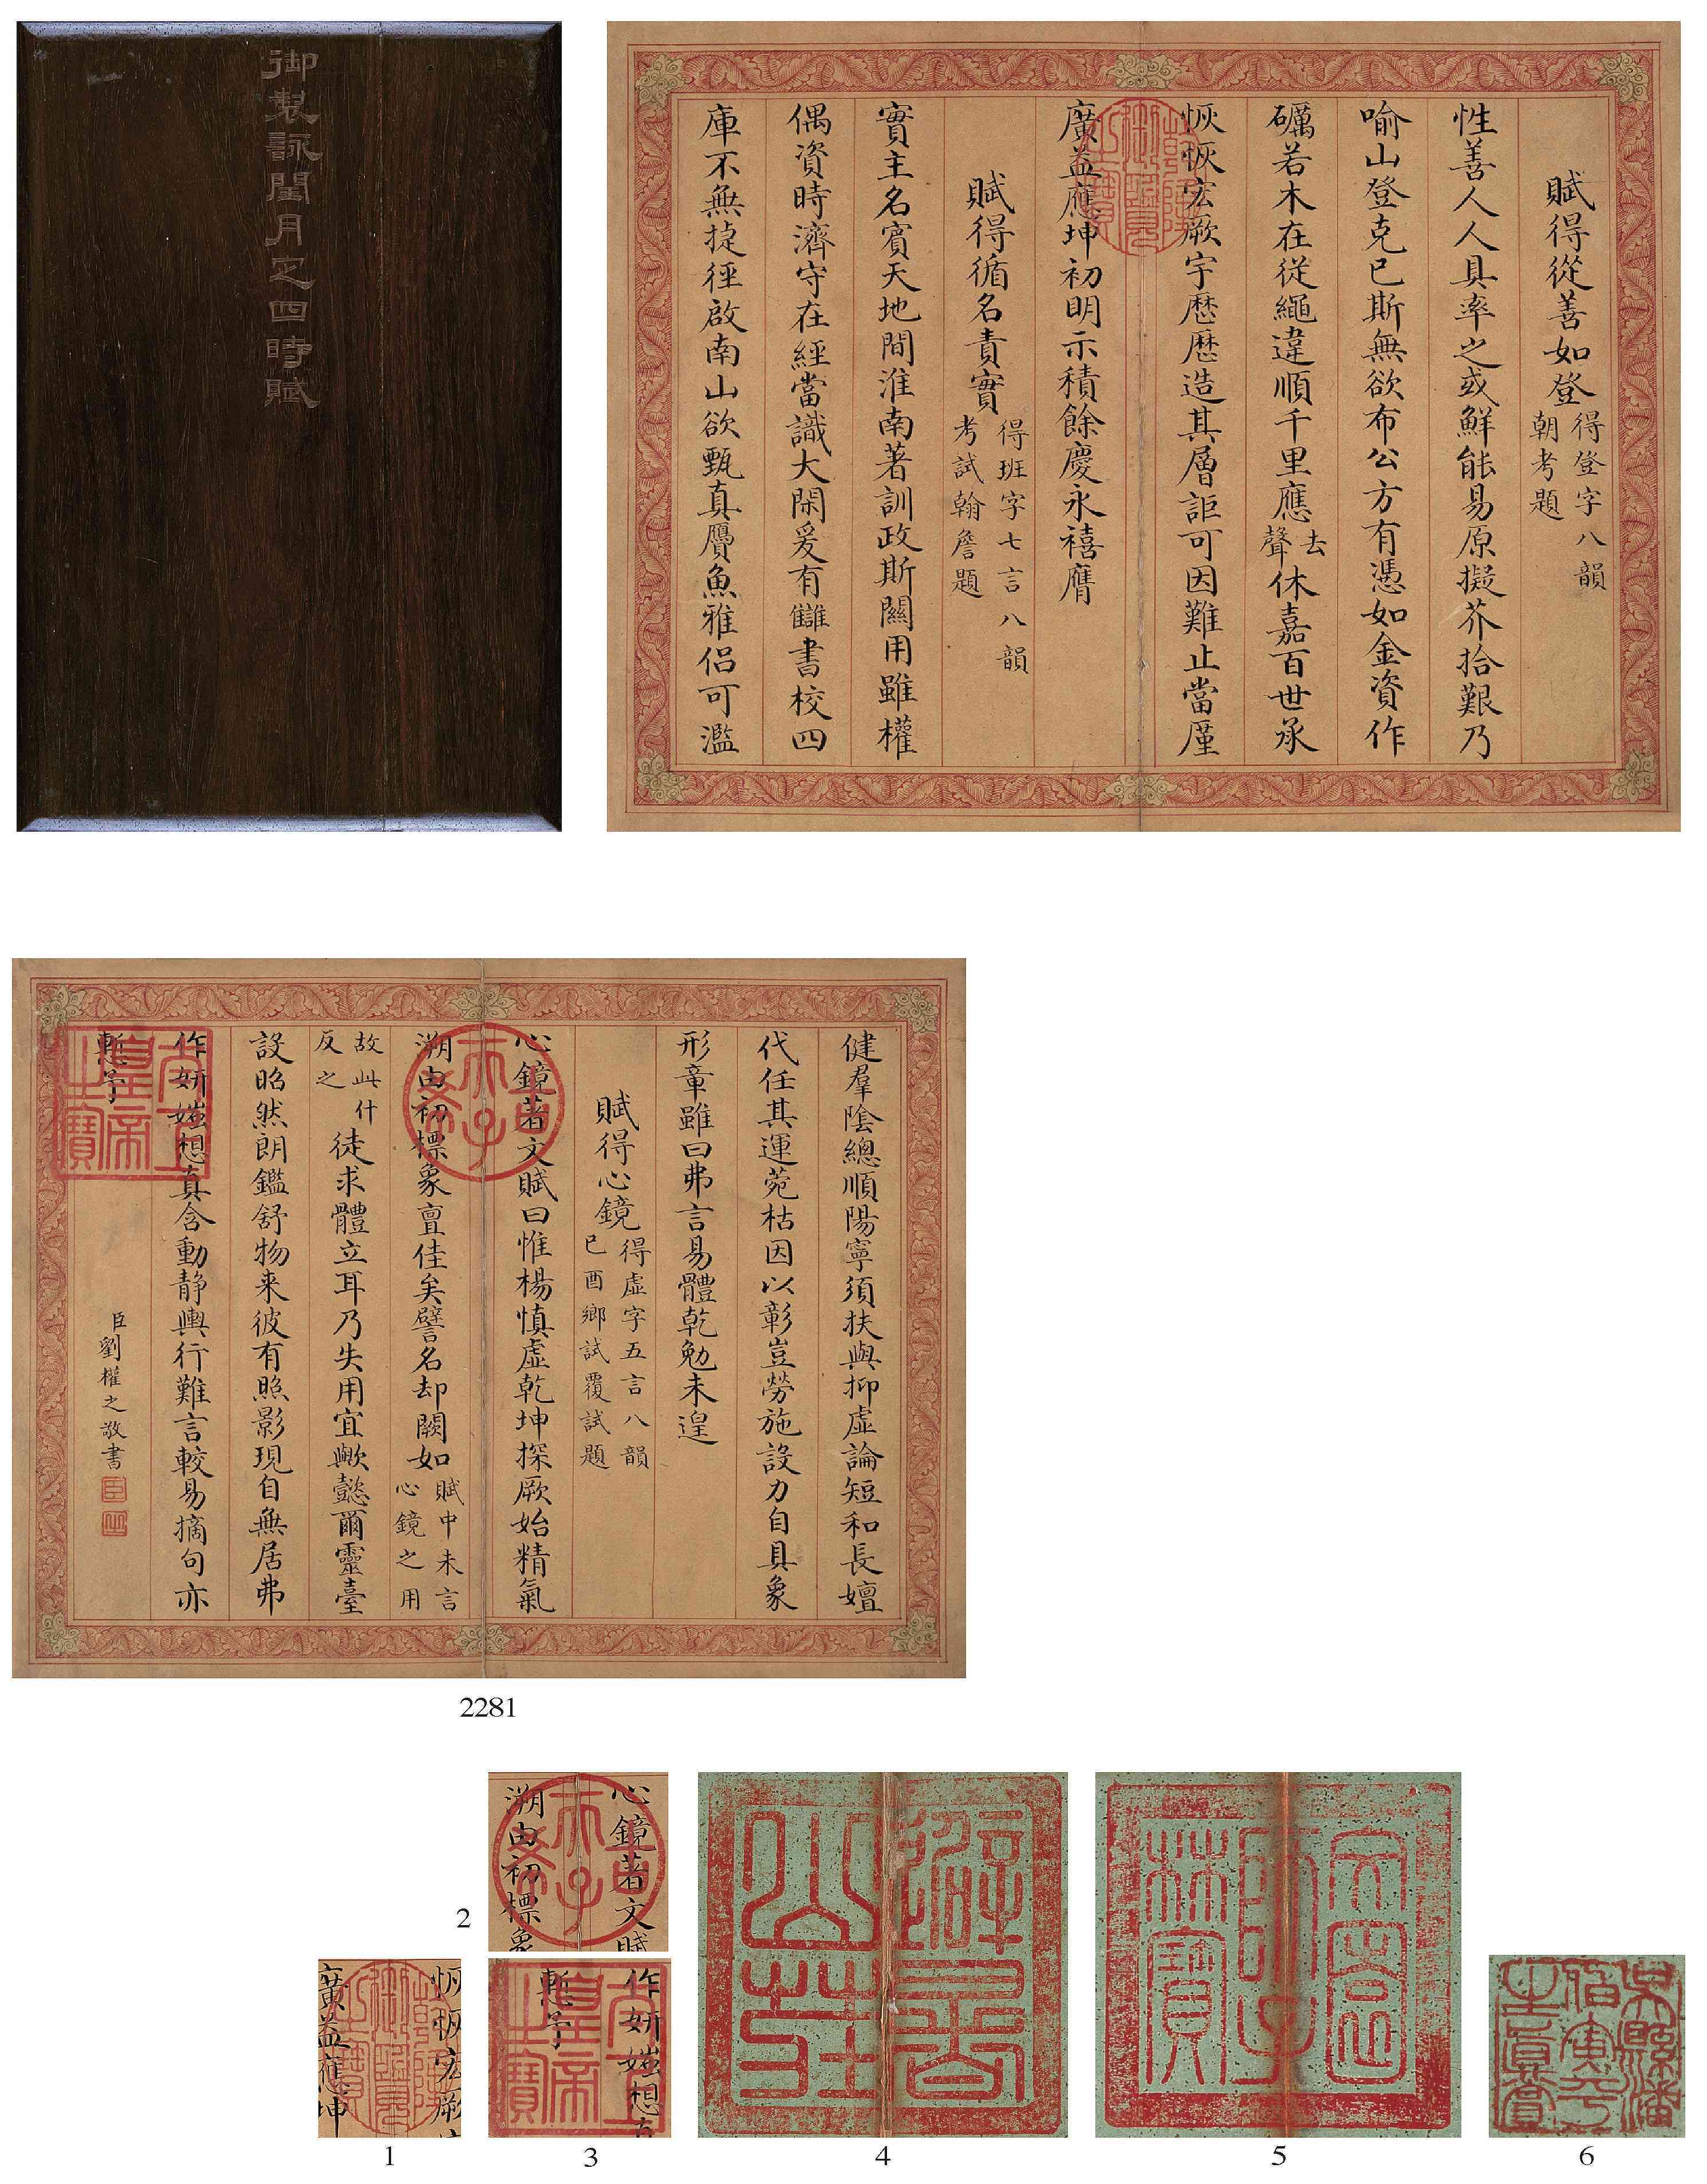 御製詠閏月定四時賦
賦得從善如登得登字八韻朝考題
性善人人具率之或鮮能易原擬芥拾艱乃
喻山登克已斯無欲布公方有憑如金資作
礪若木在從繩違順千里應去聲休嘉百世承
恢恢宏厥宇歷歷造其層詎可因難止當厪
廣益應坤初明示積餘慶永禧膺
賦得循名責實得班字七言八韻考試翰詹題
實主名賓天地間淮南著訓政斯關用雖權
偶資時濟守在經當識大閑爰有讎書校四
庫不無捷徑啟南山欲甄真贋魚雅侶可濫
健羣陰總順陽寧須扶與抑虛論短和長嬗
代任其運菀枯因以彰豈勞施設力自具象
形章雖曰弗言易體乾勉未遑
賦得心鏡得虛字五言八韻己酉鄉試覆試題
心鏡著文賦曰惟楊慎虛乾坤探厥始精氣
溯由初標象亶佳矣譬名却闕如賦中未言心鏡之用
故此什反之徒求體立耳乃失用宜歟懿爾靈臺
設昭然朗鑑舒物来彼有照影現自無居弗
作妍媸想真含動静輿行難言較易摘句亦
慙予
臣劉權之敬書
2281
古希天子
五福五代堂
1
2
3
避暑山莊
4
5
6